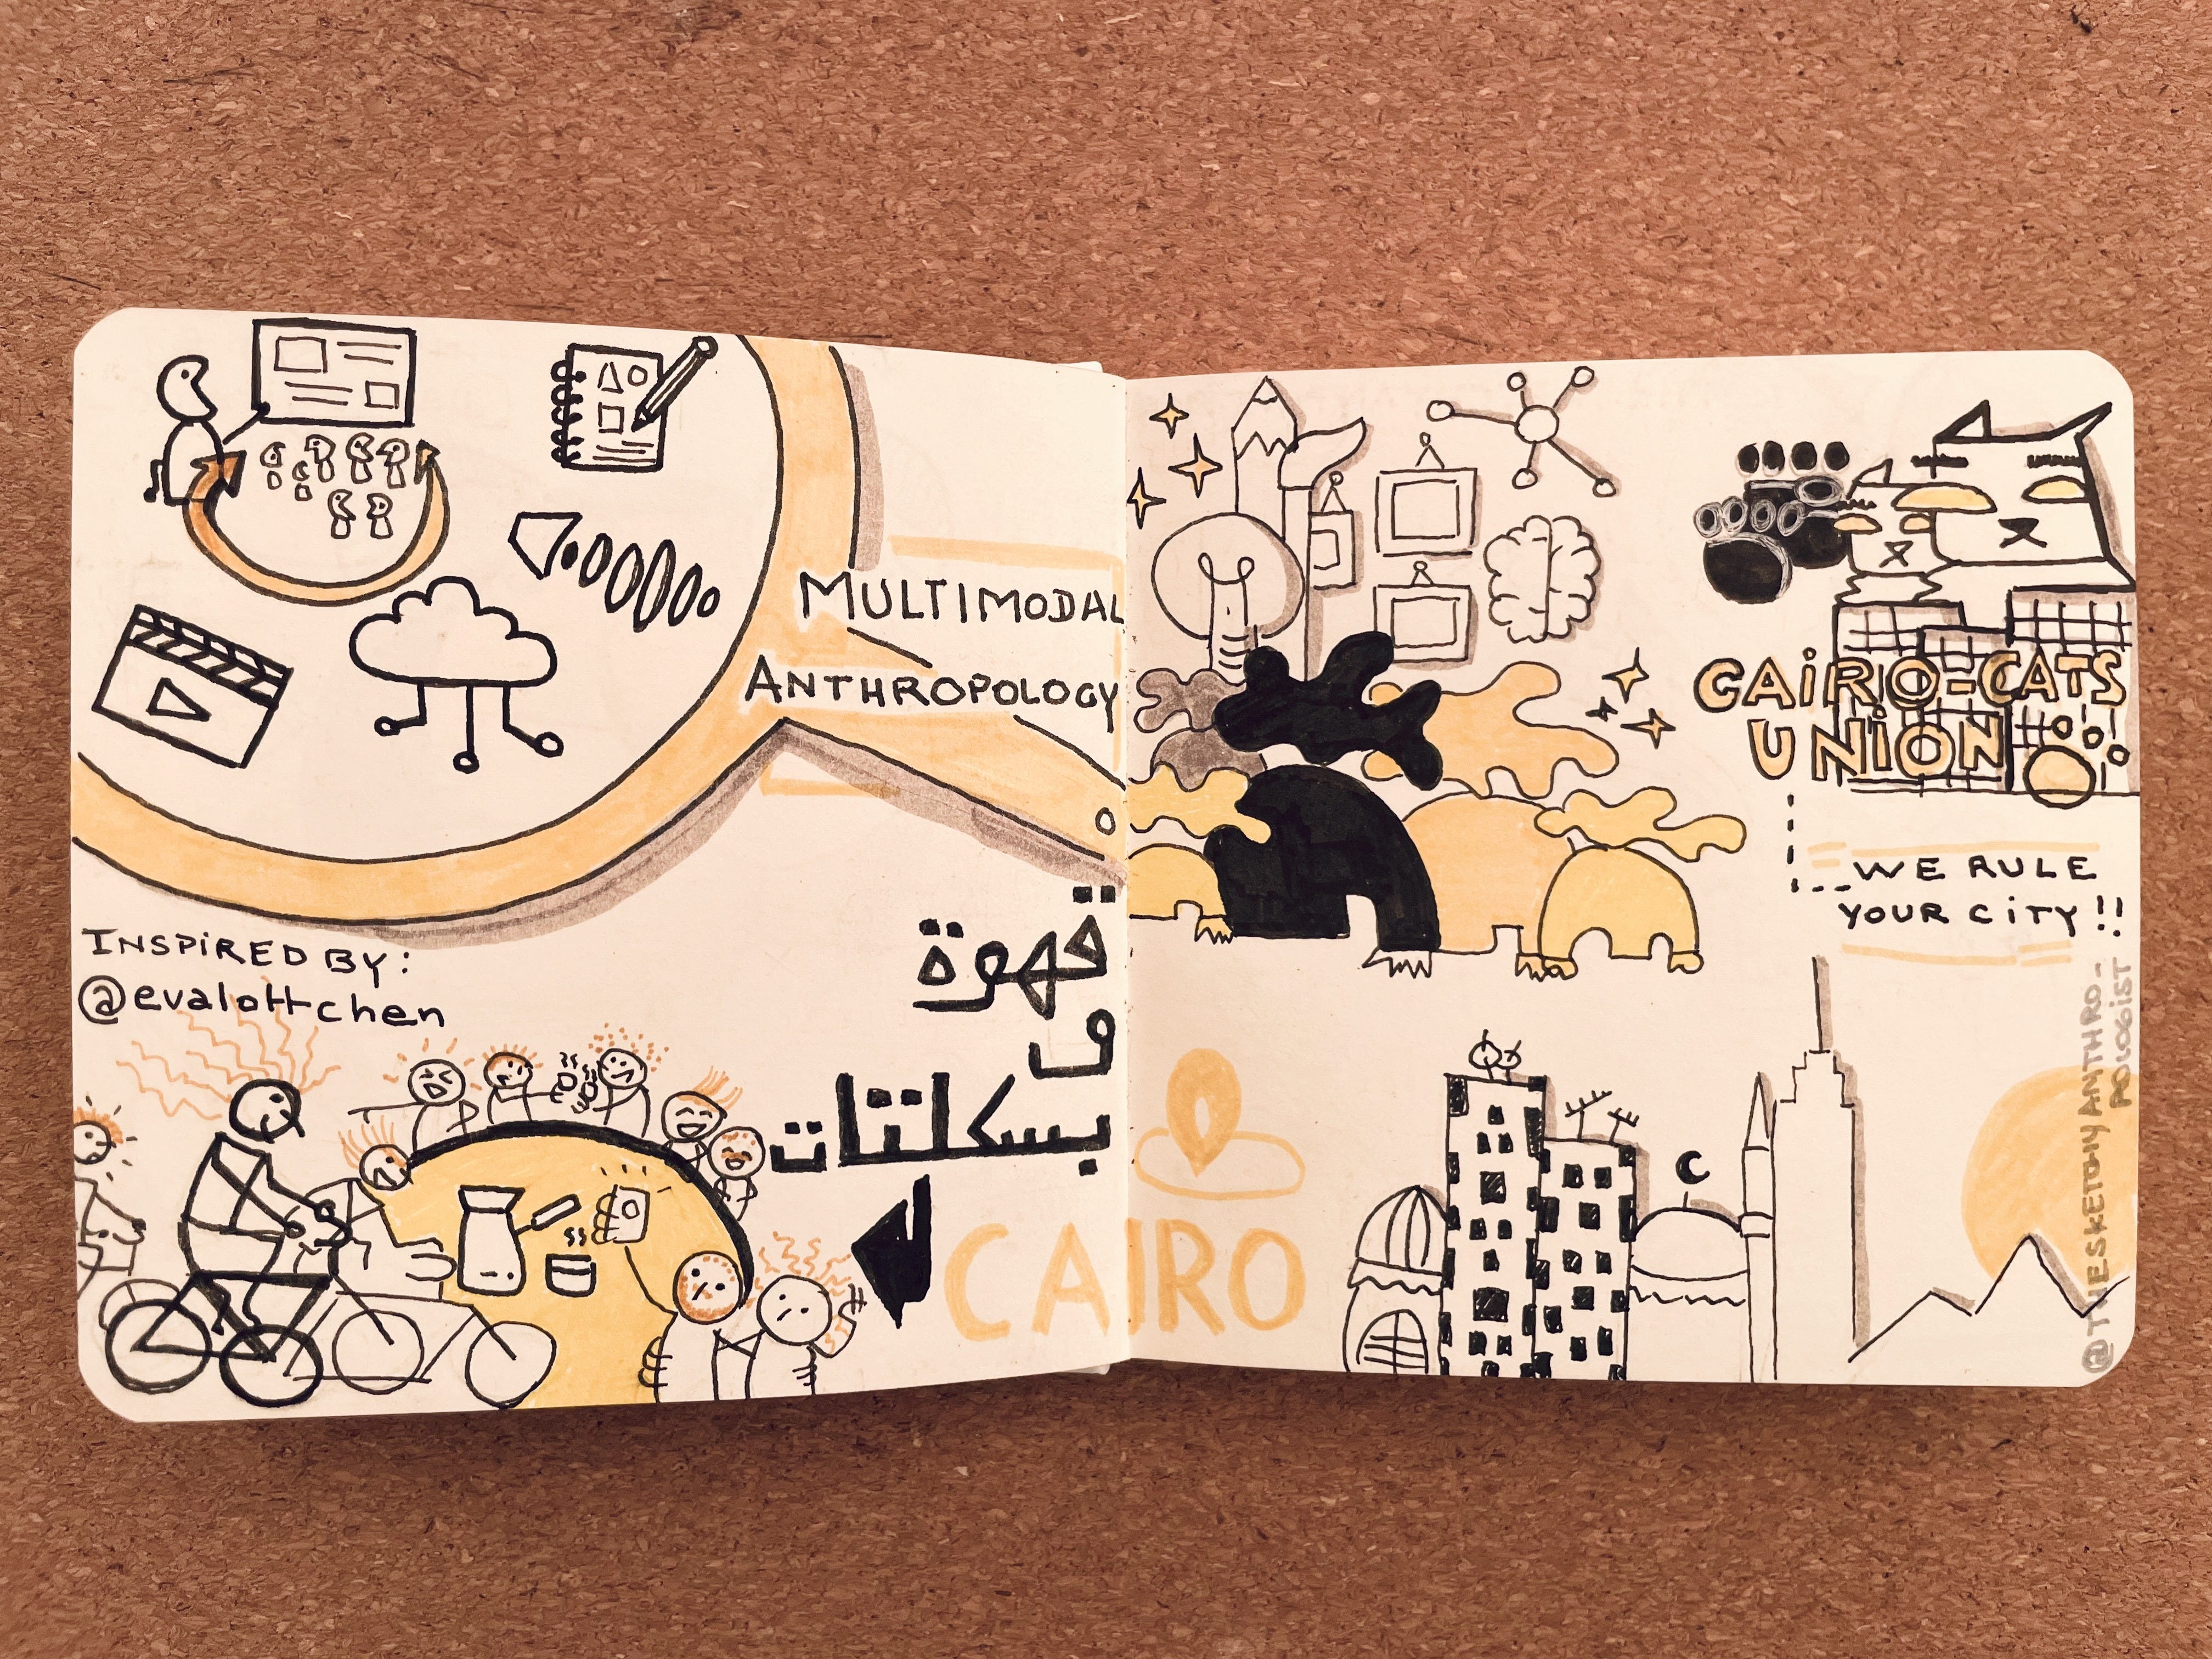 MULTIMODAL
ANTHROPOLOGY
INSPIRED BY:
@evalottchen
قهوة
و
بسكلتات
CAIRO
CAIRO-CATS
UNION
WE RULE
YOUR CITY!!
@THESKETCHY ANTHRO-
POLOGIST